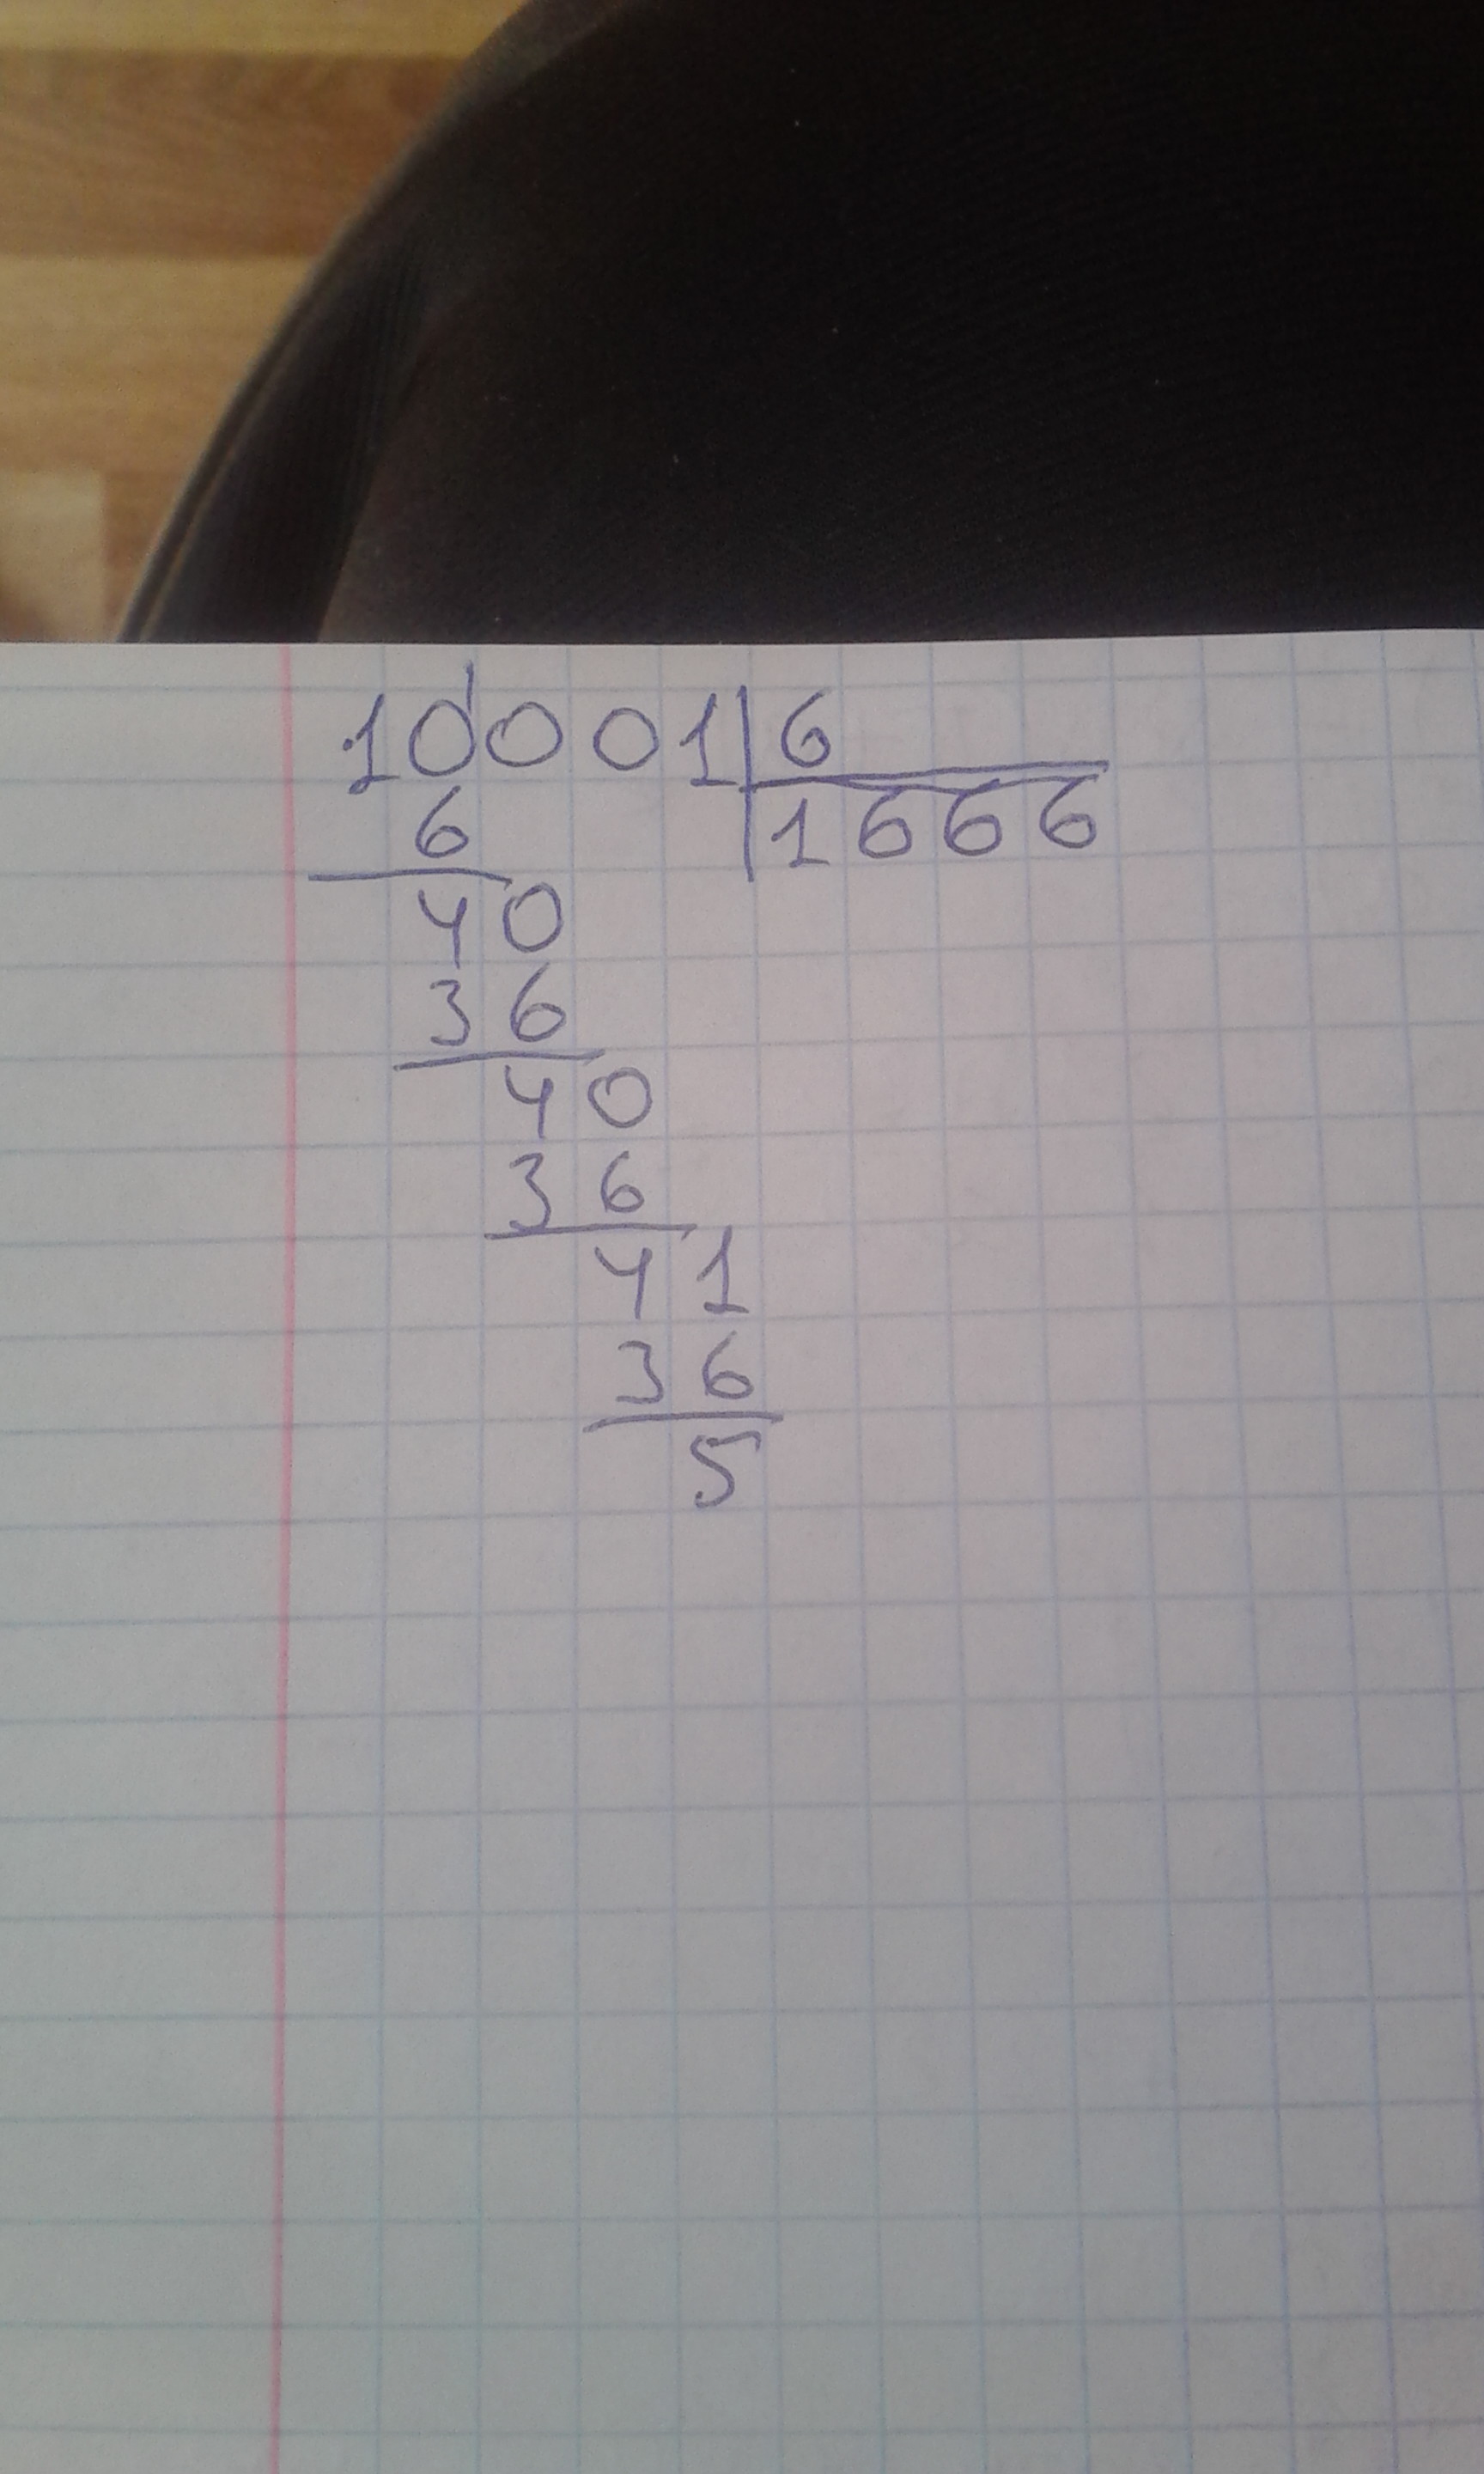 10001|6
6 |1666
40
36
40
36
41
36
5